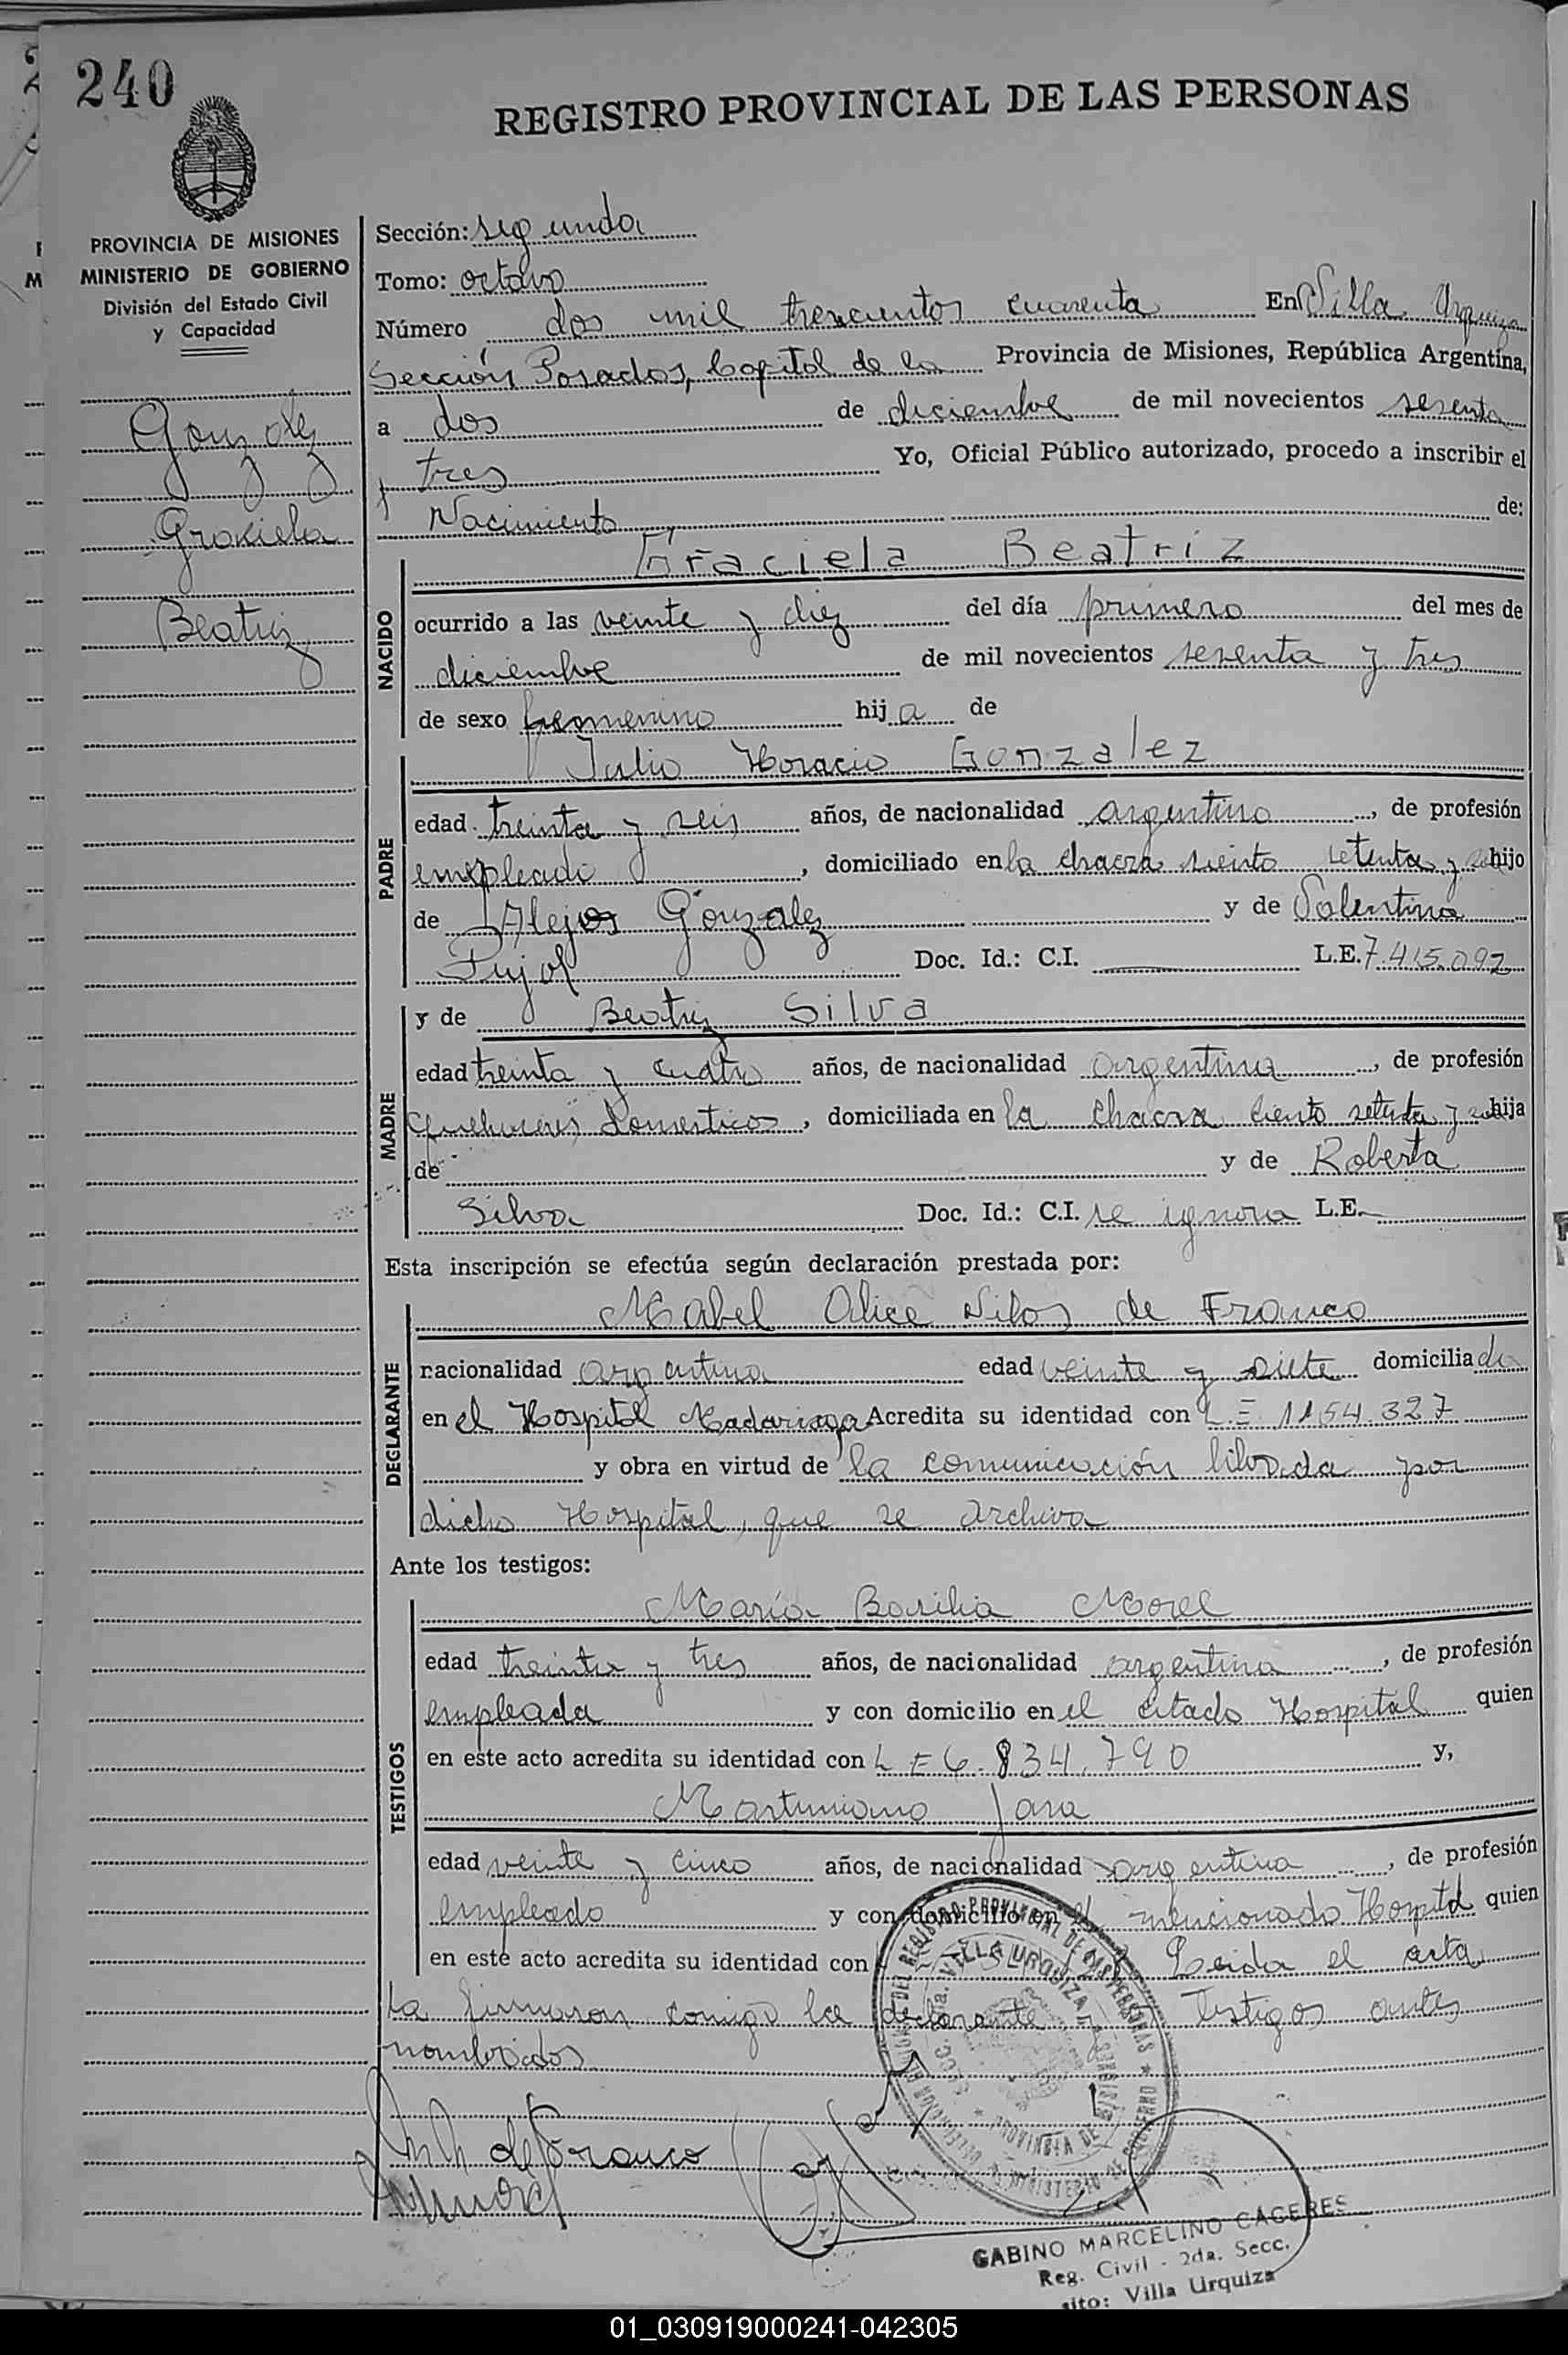 240
REGISTRO PROVINCIAL DE LAS PERSONAS
PROVINCIA DE MISIONES
MINISTERIO DE GOBIERNO
División del Estado Civil
y Capacidad
Gonzalez
Graciela
Beatriz
Sección: segunda
Tomo: octavo
Número dos mil trescientos cuarenta En Villa Urquiza
Sección Posadas, Capital de la Provincia de Misiones, República Argentina,
a dos de diciembre de mil novecientos sesenta
y tres Yo, Oficial Público autorizado, procedo a inscribir el
Nacimiento de:
NACIDO
Graciela Beatriz
ocurrido a las veinte y diez del día primero del mes de
diciembre de mil novecientos sesenta y tres
de sexo femenino hija de
PADRE
Julio Horacio Gonzalez
edad treinta y seis años, de nacionalidad argentino, de profesión
empleado, domiciliado en la chacra ciento setenta y hijo
de Alejos Gonzalez y de Valentina
Pujol Doc. Id.: C.I. L.E. 7.415.092
MADRE
y de Beatriz Silva
edad treinta y cuatro años, de nacionalidad argentina, de profesión
Quehaceres Domesticos, domiciliada en la chacra ciento setenta y hija
de y de Roberta
Silva Doc. Id.: C.I. se ignora L.E.
Esta inscripción se efectúa según declaración prestada por:
DECLARANTE
Mabel Alice de Franco
nacionalidad argentina edad veinte y siete domiciliada
en el Hospital Madariaga Acredita su identidad con L.E. 1154.327
y obra en virtud de la comunicación librada por
dicho Hospital, que se archiva
Ante los testigos:
TESTIGOS
María Basilia Morel
edad treinta y tres años, de nacionalidad argentina, de profesión
empleada y con domicilio en el citado Hospital quien
en este acto acredita su identidad con L E 6.834.790 y,
Martiniano Jara
edad veinte y cinco años, de nacionalidad argentina, de profesión
empleado y con domicilio en el mencionado Hospital quien
en este acto acredita su identidad con Leida el acta
la firmaron conmigo la declarante y testigos antes
nombrados
de Franco
Morel
VILLA URQUIZA
PROVINCIA DE MISIONES
GABINO MARCELINO CACERES
Reg. Civil - 2da. Secc.
sito: Villa Urquiza
01_030919000241-042305